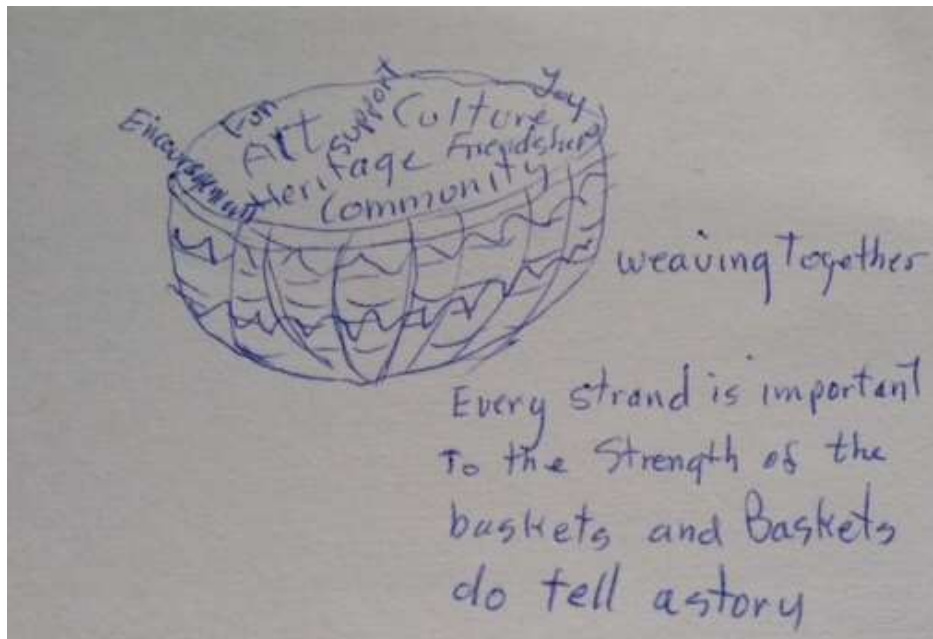 Encouragement
Fun
Art
Support
Culture
Joy
Heritage
Friendship
Community
weaving Together
Every strand is important
To the Strength of the
baskets and Baskets
do tell a story